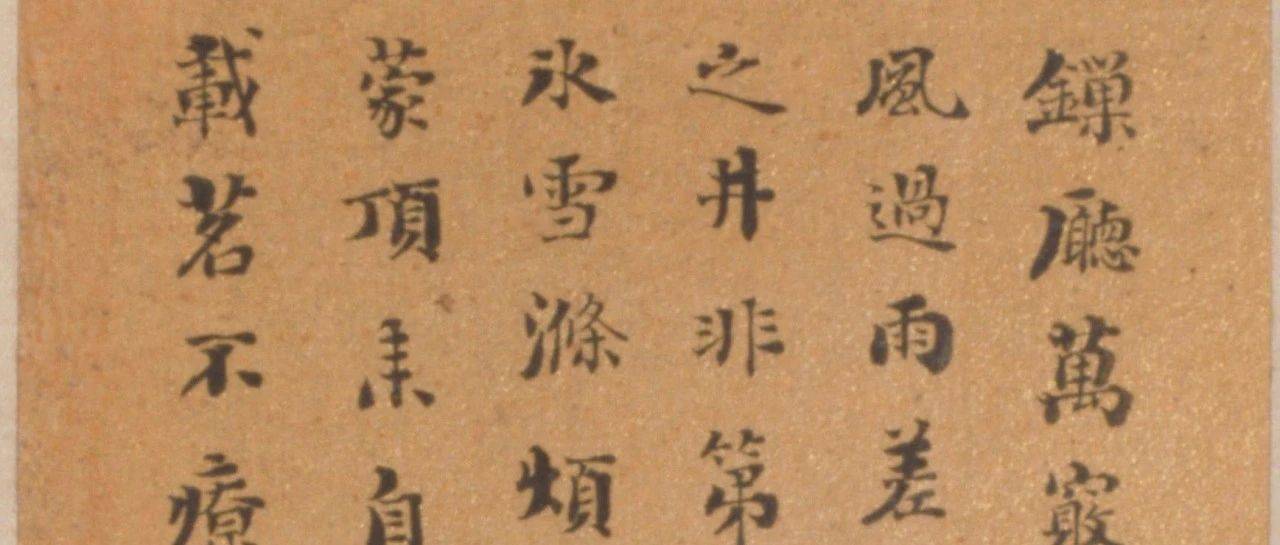 鏎廳萬竅
風過雨差
之井非第
氷雪滌煩
蒙頂来自
載茗不療